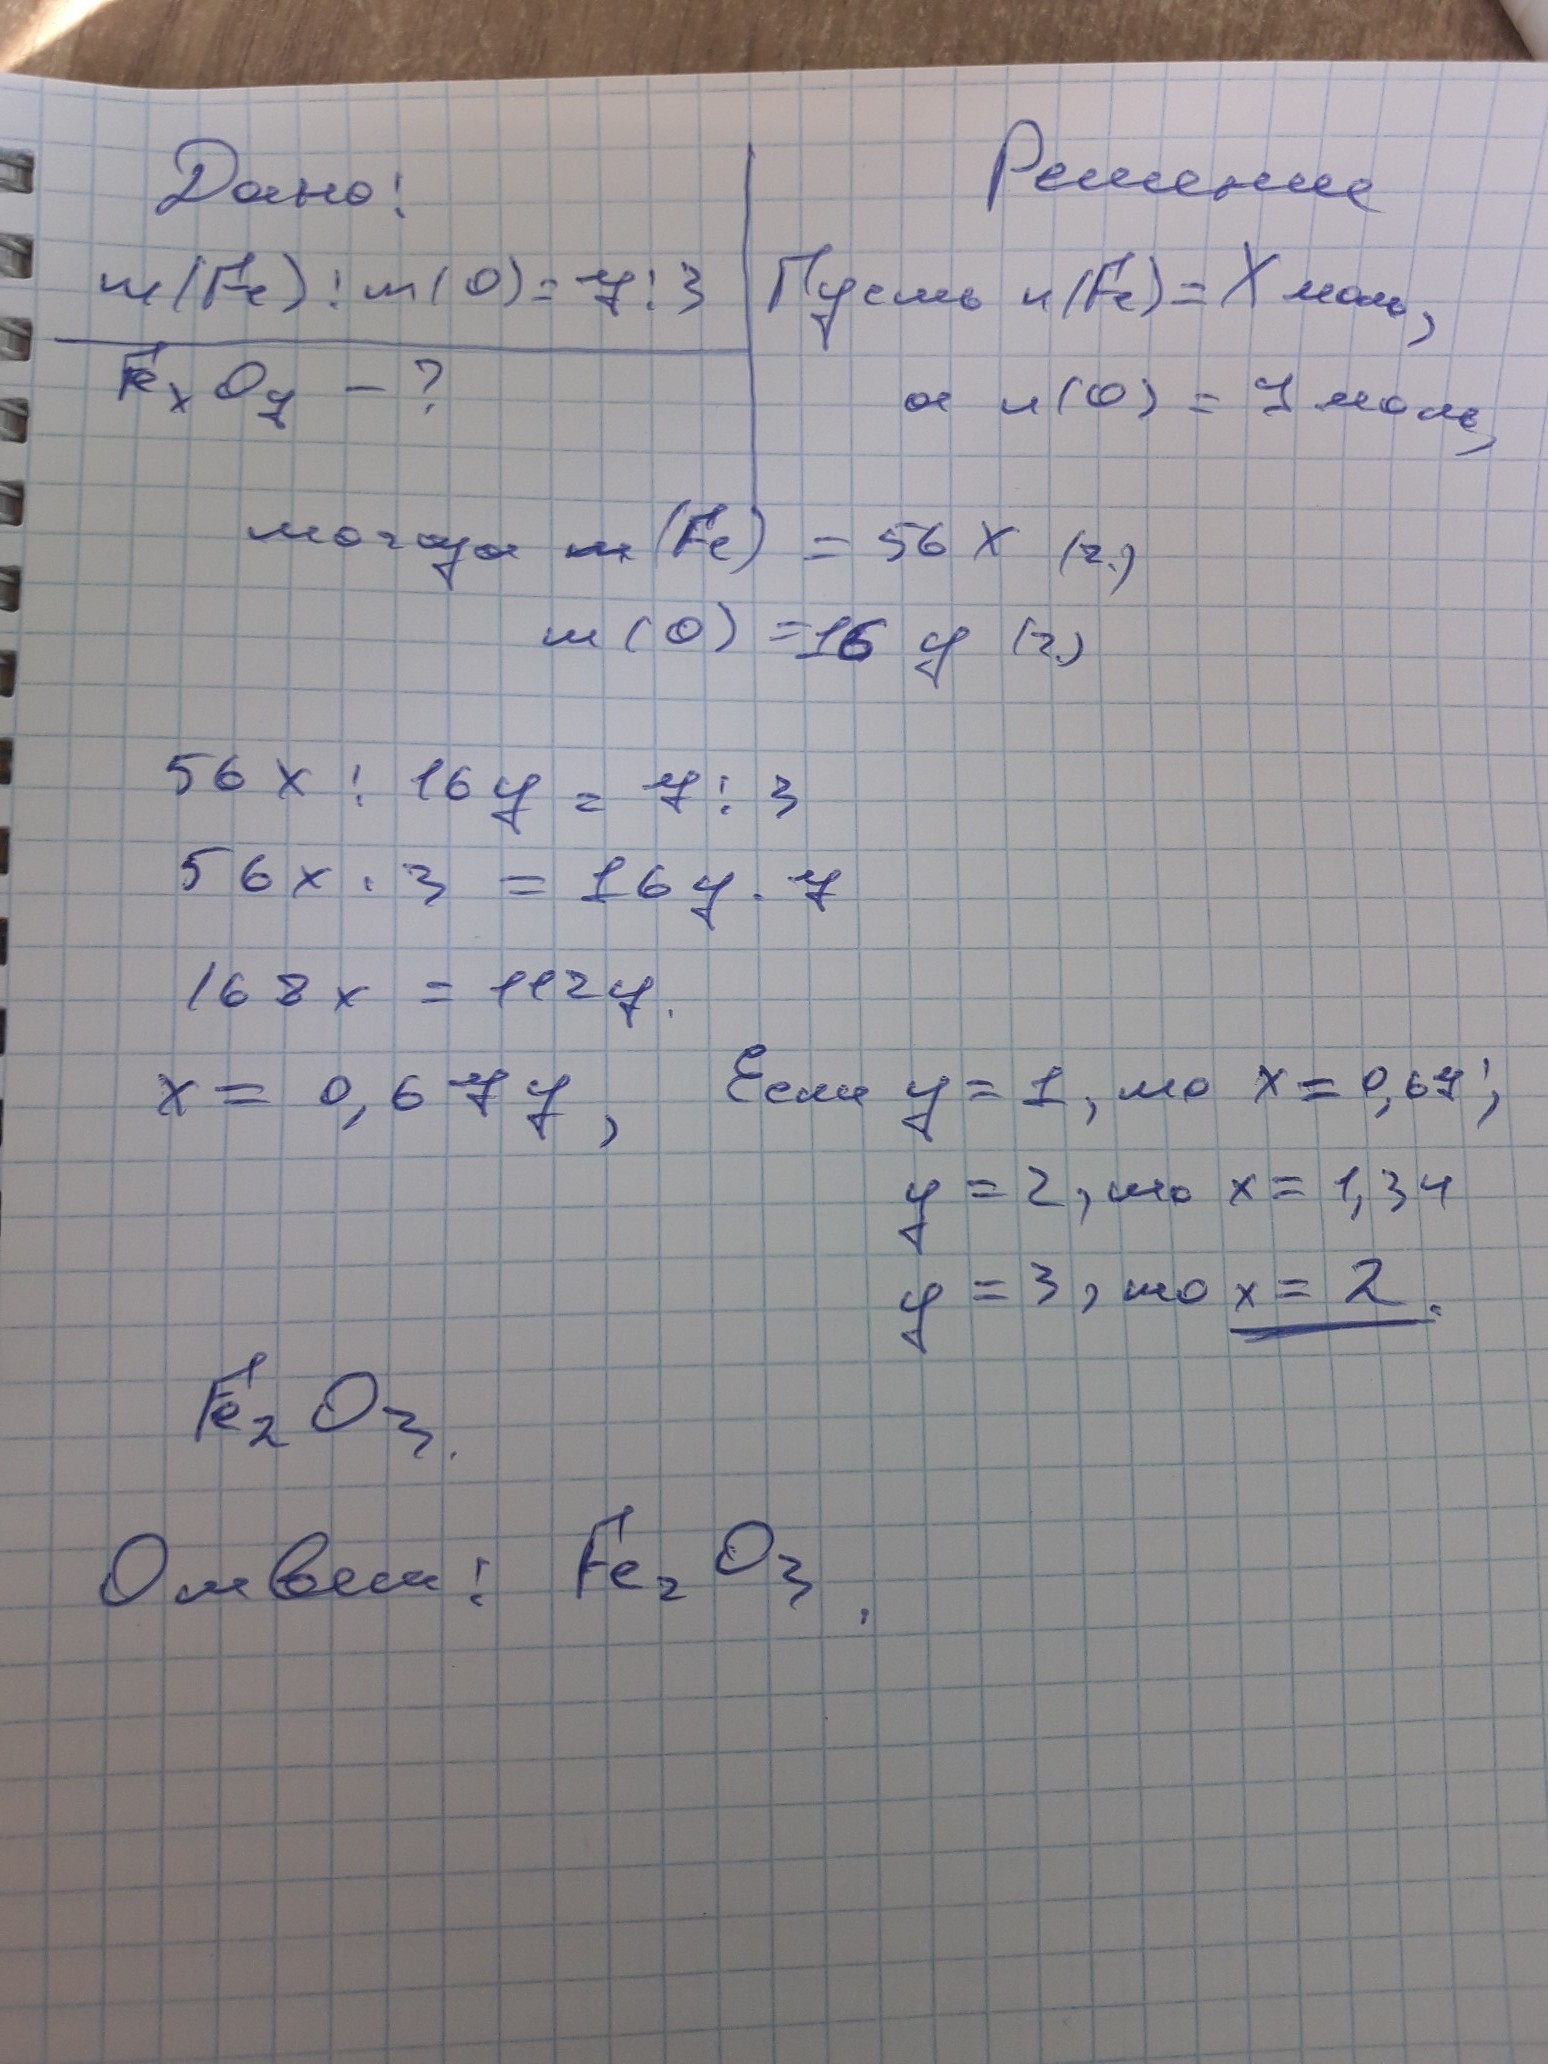 Дано:
Решение
m(Fe) : m(O) = 7 : 3
Пусть n(Fe) = X моль,
Fe_x O_y - ?
а n(O) = y моль,
тогда m(Fe) = 56 X (г.)
m(O) = 16 y (г.)
56 x : 16 y = 7 : 3
56 x · 3 = 16 y · 7
168 x = 112 y.
x = 0,67 y, Если y = 1, то x = 0,67;
y = 2, то x = 1,34
y = 3, то x = 2.
Fe₂O₃.
Ответ: Fe₂O₃.